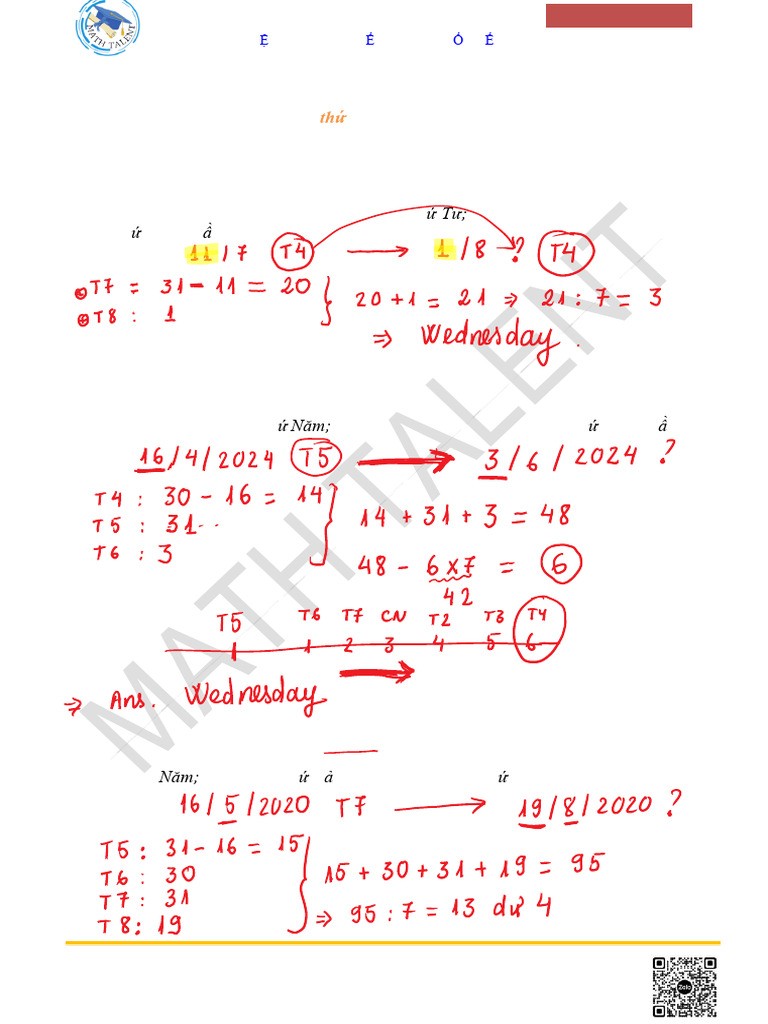 MATH TALENT
Ệ Ế Ố Ế
thứ
ứ Tư;
ứ ầ
11/7 T4 → 1/8 → ? T4
T7 = 31 - 11 = 20
T8 : 1
20 + 1 = 21 ⇒ 21 : 7 = 3
⇒ Wednesday.
MATH TALENT
ứ Năm; ứ ầ
16/4/2024 T5 → 3/6/2024 ?
T4 : 30 - 16 = 14
T5 : 31..
T6 : 3
14 + 31 + 3 = 48
48 - 6x7 = 6
42
T5 T6 T7 CN T2 T3 T4
1 1 2 3 4 5 6
⇒ Ans. Wednesday
Năm; ứ ả ứ
16/5/2020 T7 → 19/8/2020 ?
T5: 31 - 16 = 15
T6 : 30
T7 : 31
T8: 19
15 + 30 + 31 + 19 = 95
⇒ 95 : 7 = 13 dư 4
Zalo